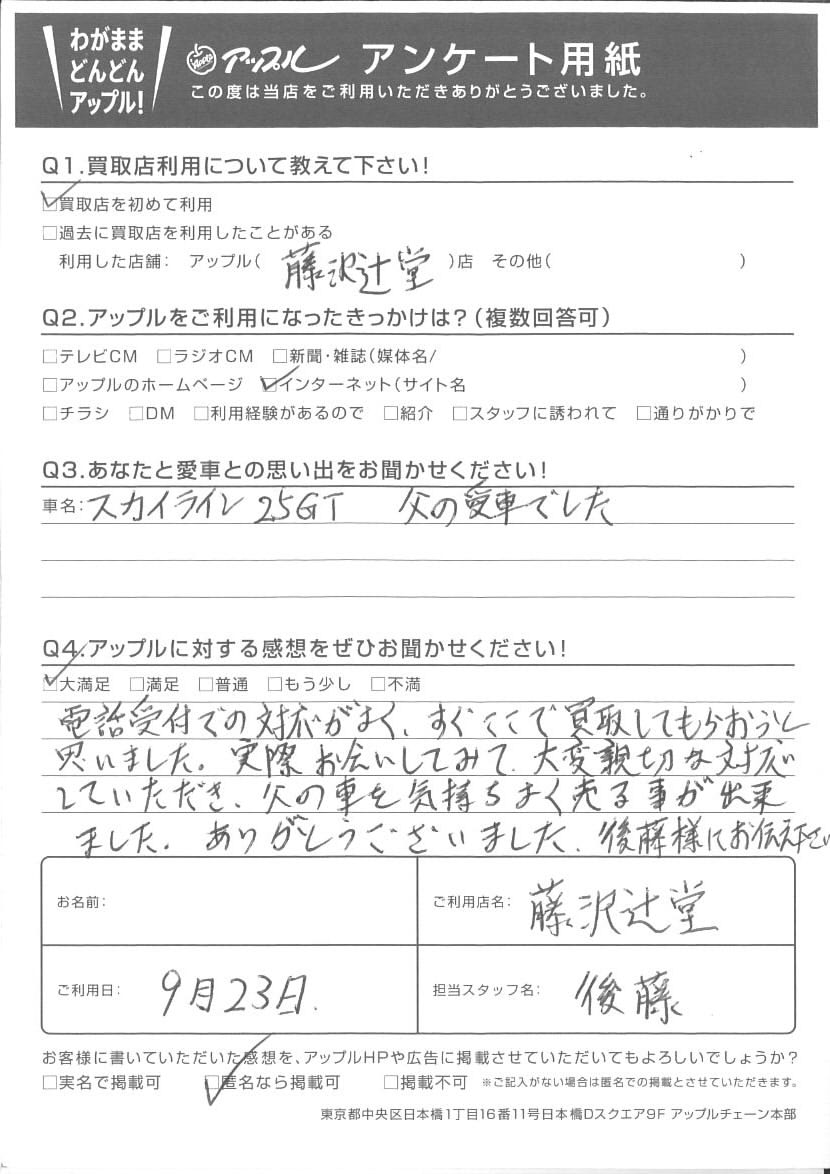 わがまま
どんどん
アップル!
Apple アップル アンケート用紙
この度は当店をご利用いただきありがとうございました。
Q1.買取店利用について教えて下さい!
☑買取店を初めて利用
□過去に買取店を利用したことがある
利用した店舗: アップル( 藤沢辻堂 )店 その他( )
Q2.アップルをご利用になったきっかけは?(複数回答可)
□テレビCM □ラジオCM □新聞・雑誌(媒体名/ )
□アップルのホームページ ☑インターネット(サイト名 )
□チラシ □DM □利用経験があるので □紹介 □スタッフに誘われて □通りがかりで
Q3.あなたと愛車との思い出をお聞かせください!
車名:スカイライン 25GT 父の愛車でした
Q4.アップルに対する感想をぜひお聞かせください!
☑大満足 □満足 □普通 □もう少し □不満
電話受付での対応がよく、すぐここで買取してもらおうと
思いました。実際お会いしてみて、大変親切な対応
していただき、父の車を気持ちよく売る事が出来
ました。ありがとうございました。後藤様にお伝え下さい
お名前:
ご利用店名: 藤沢辻堂
ご利用日: 9月23日.
担当スタッフ名: 後藤
お客様に書いていただいた感想を、アップルHPや広告に掲載させていただいてもよろしいでしょうか?
□実名で掲載可 ☑匿名なら掲載可 □掲載不可 ※ご記入がない場合は匿名での掲載とさせていただきます。
東京都中央区日本橋1丁目16番11号日本橋Dスクエア9F アップルチェーン本部